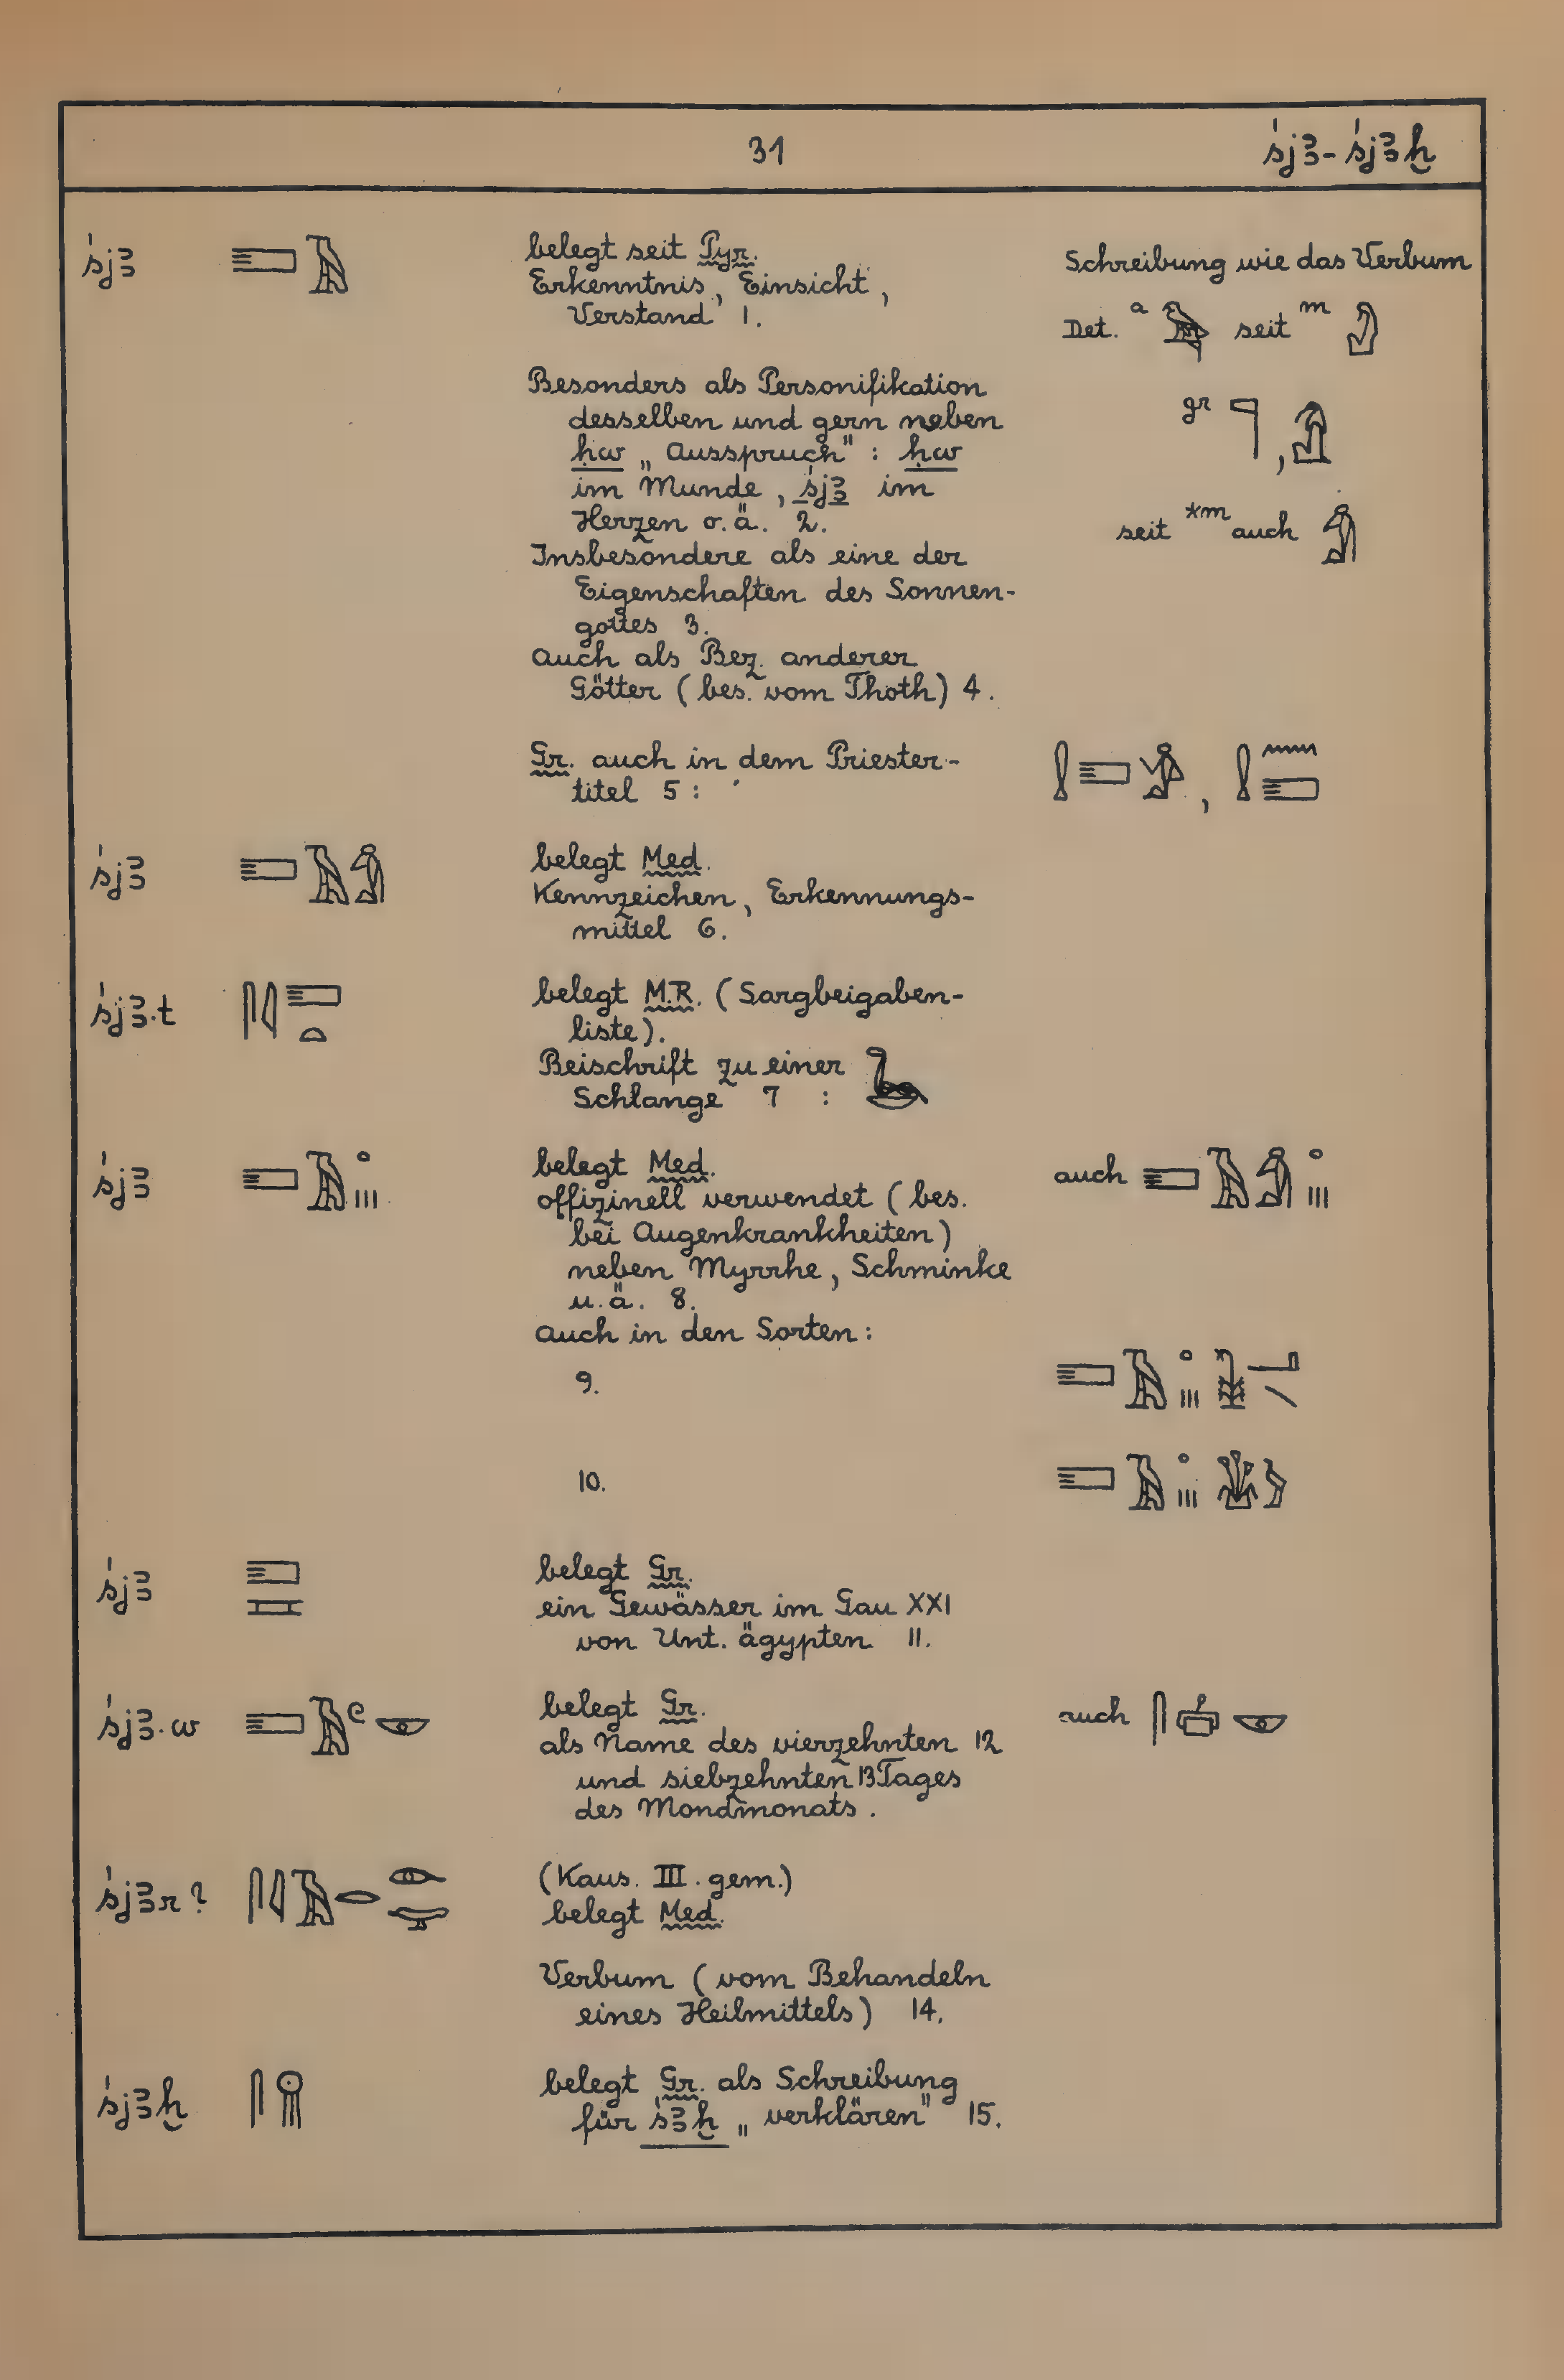 31
śjꜣ - śjꜣḫ
śjꜣ
belegt seit Pyr.
Erkenntnis, Einsicht,
Verstand 1.
Schreibung wie das Verbum
Det. a seit m
gr ,
Besonders als Personifikation
desselben und gern neben
ḥw „Ausspruch“ : ḥw
im Munde, śjꜣ im
Herzen o.ä. 2.
seit *m auch
Insbesondere als eine der
Eigenschaften des Sonnen-
gottes 3.
Auch als Bez. anderer
Götter (bes. vom Thoth) 4.
Gr. auch in dem Priester-
titel 5 :
śjꜣ
belegt Med.
Kennzeichen, Erkennungs-
mittel 6.
śjꜣ.t
belegt M.R. (Sargbeigaben-
liste).
Beischrift zu einer
Schlange 7 :
śjꜣ
belegt Med.
offizinell verwendet (bes.
bei Augenkrankheiten)
neben Myrrhe, Schminke
u.ä. 8.
auch
Auch in den Sorten:
9.
10.
śjꜣ
belegt Gr.
ein Gewässer im Gau XXI
von Unt. ägypten 11.
śjꜣ.w
belegt Gr.
als Name des vierzehnten 12
und siebzehnten 13 Tages
des Mondmonats.
auch
śjꜣr?
(Kaus. III. gem.)
belegt Med.
Verbum (vom Behandeln
eines Heilmittels) 14.
śjꜣḫ
belegt Gr. als Schreibung
für śꜣḫ „verklären“ 15.